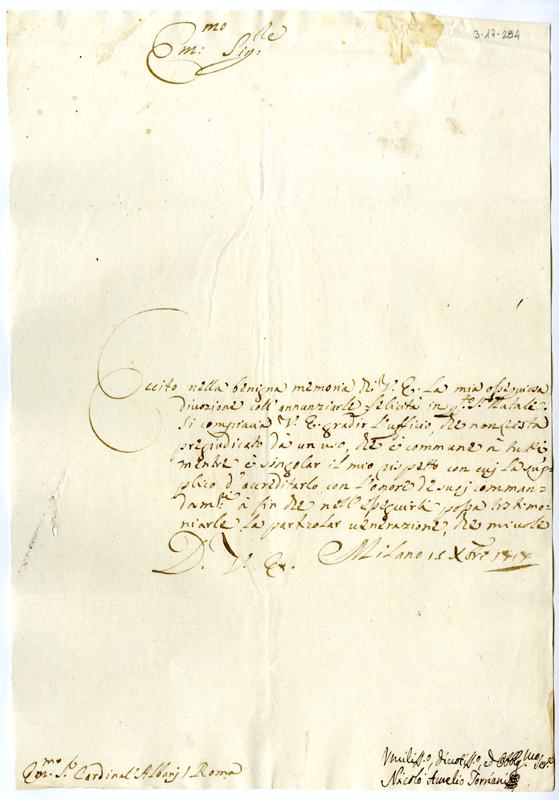 3-17-284
Em:mo Sig:
Eccito nella benigna memoria di V. E. la mia ossequiosa
divozione coll'annunziarle felicità in q.to S.to Natale.
Si compiaccia V. E. gradir l'ufficio, che non resta
pregiudicato dà un uso, che è commune à tutti
mentre è singolar il mio rispetto con cuj la sup-
plico d'accreditarlo con l'onore de suoj comman-
dam.ti à fin che nell'esseguirli possa testimo-
niarle la particolar venerazione, che mi vole
D. V. E. Milano 15 Xbre
Em.mo S.r Cardinal'Albanj / Roma
Umiliss.o, divotiss.o, ed Obblig.mo Ser.
Nicolò Aurelio Torriani